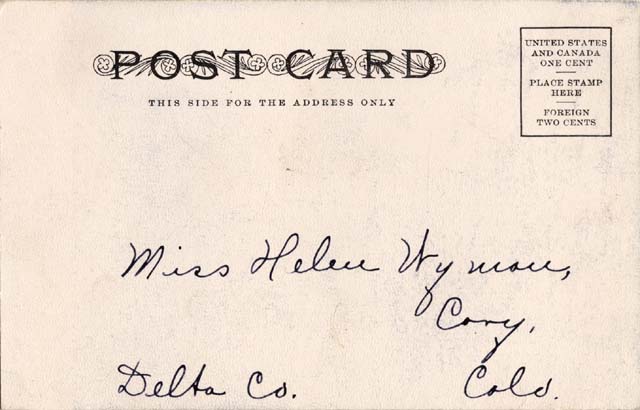 POST CARD
THIS SIDE FOR THE ADDRESS ONLY
UNITED STATES
AND CANADA
ONE CENT
PLACE STAMP
HERE
FOREIGN
TWO CENTS
Miss Helen Wyman,
Cory,
Delta Co. Colo.